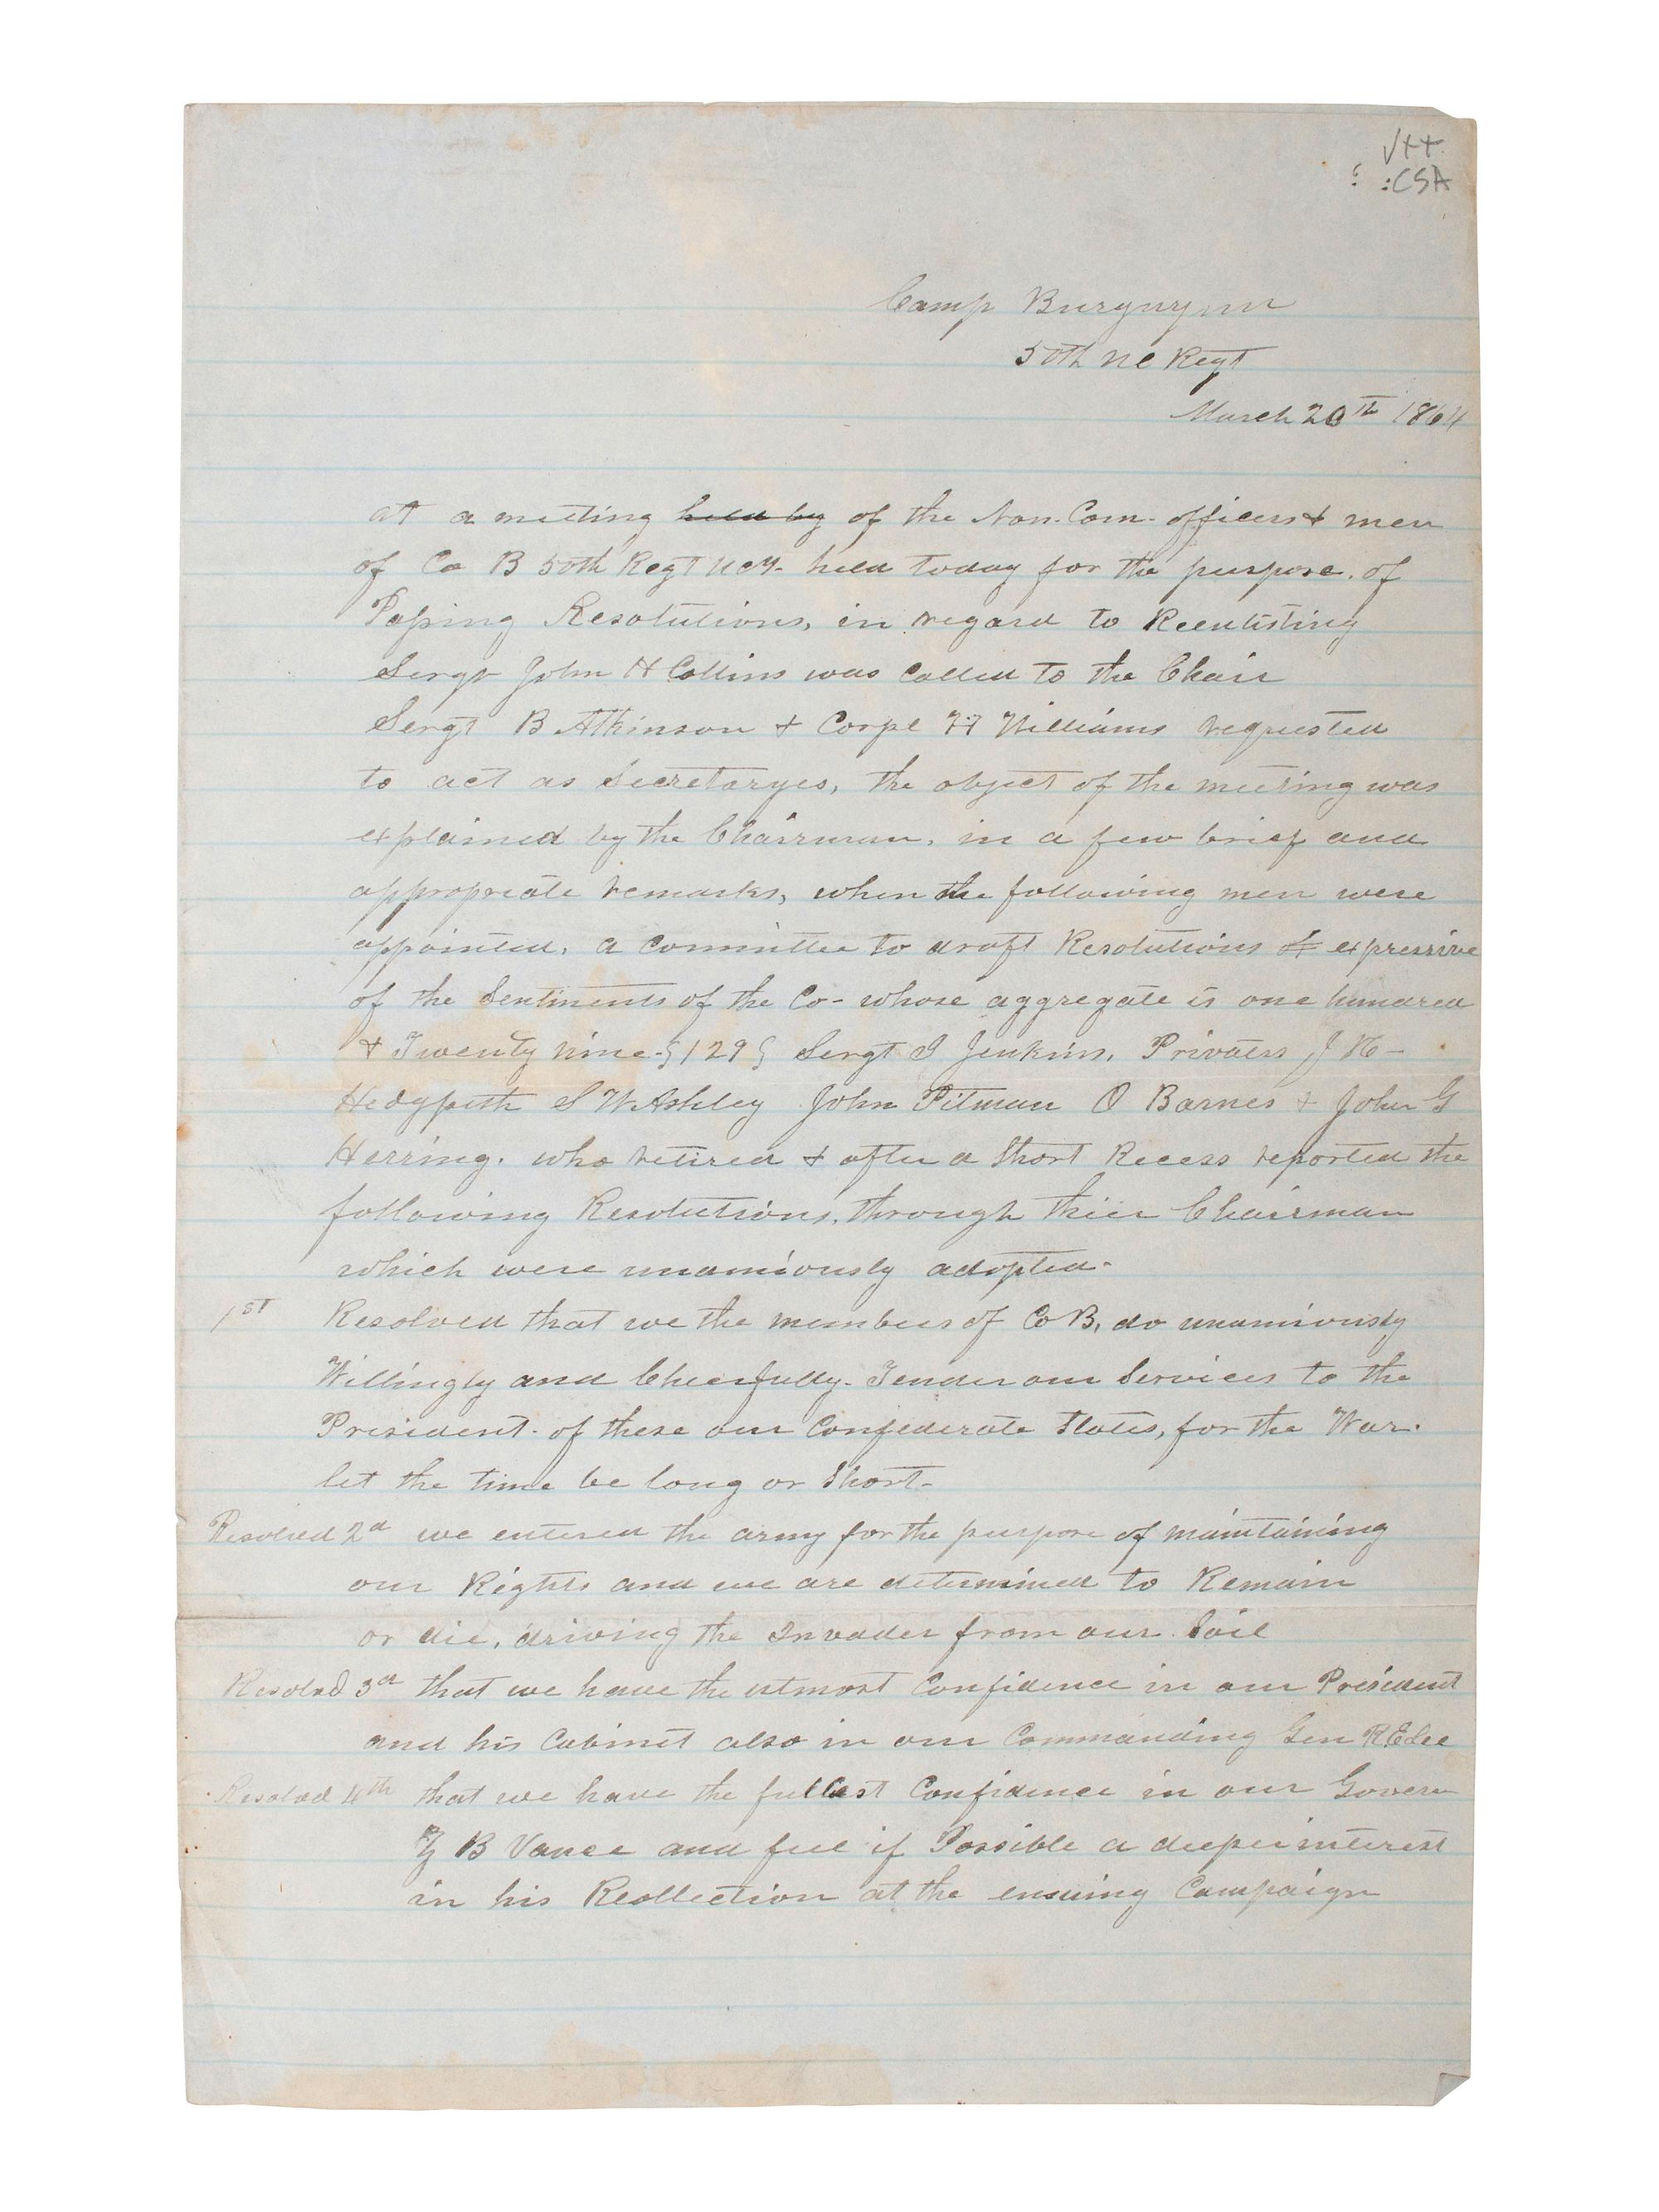 V++
:CSA
Camp Burgwynn
50th NC Regt
March 20th 1864
at a meeting held by of the Non. Com. officers & men
of Co B 50th Regt NCT. held today for the purpose. of
Passing Resolutions, in regard to Reenlisting
Sergt John H Collins was Called to the Chair
Sergt B Atkinson & Corpl H Williams requested
to act as Secretaryes, the object of the meeting was
explained by the Chairman, in a few brief and
appropriate remarks, when the following men were
appointed, a Committee to draft Resolutions of expressive
of the Sentiments of the Co- whose aggregate is one hundred
& Twenty nine. 129 Sergt I Jenkins, Privates J N-
Hedgpeth S W Ashley John Pitman O Barnes & John G
Herring. who retired & after a Short Recess reported the
following Resolutions, through thier Chairman
which were unamiously adopted-
1st Resolved that we the members of Co B, do unamiously
Willingly and Cheerfully- Tender our Services to the
President. of these our Confederate States, for the War.
let the time be long or Short-
Resolved 2d we entered the army for the purpose of maintaining
our Rights and we are determined to Remain
or die, driving the Invader from our Soil
Resolvd 3d that we have the utmost Confidence in our President
and his Cabinet also in our Commanding Gen R E Lee
Resolvd 4th that we have the fullest Confidence in our Govern
Z B Vance and feel if Possible a deeper interest
in his Reellection at the ensuing Campaign